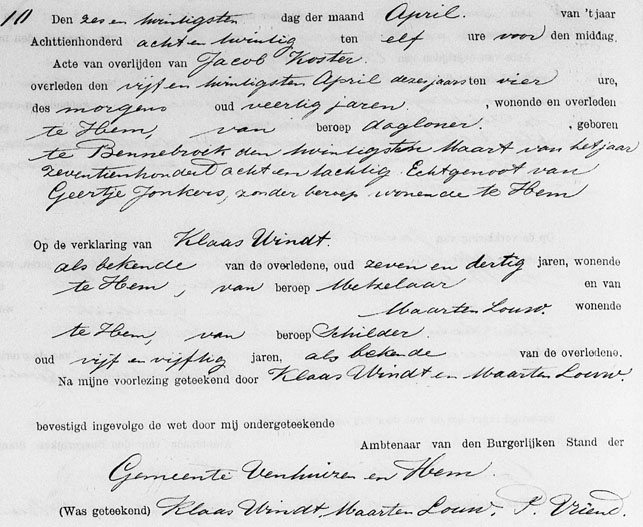 10 Den zes en twintigsten dag der maand April. van 't jaar
Achttienhonderd acht en twintig ten elf ure voor den middag.
Acte van overlijden van Jacob Koster.
overleden den vijf en twintigsten April dezes jaars ten vier ure,
des morgens oud veertig jaren. , wonende en overleden
te Hem, van beroep dagloner. , geboren
te Bennebroek den twintigsten Maart van het jaar
zeventienhonderd acht en tachtig. Echtgenoot van
Geertje Jonkers, zonder beroep wonende te Hem
Op de verklaring van Klaas Windt.
als bekende van de overledene, oud zeven en dertig jaren, wonende
te Hem, van beroep Metzelaar en van
Maarten Louw. wonende
te Hem, van beroep Schilder.
oud vijf en vijftig jaren, als bekende van de overledene.
Na mijne voorlezing geteekend door Klaas Windt en Maarten Louw.
bevestigd ingevolge de wet door mij ondergeteekende
Ambtenaar van den Burgerlijken Stand der
Gemeente Venhuizen en Hem.
(Was geteekend) Klaas Windt, Maarten Louw, P. Vriend.